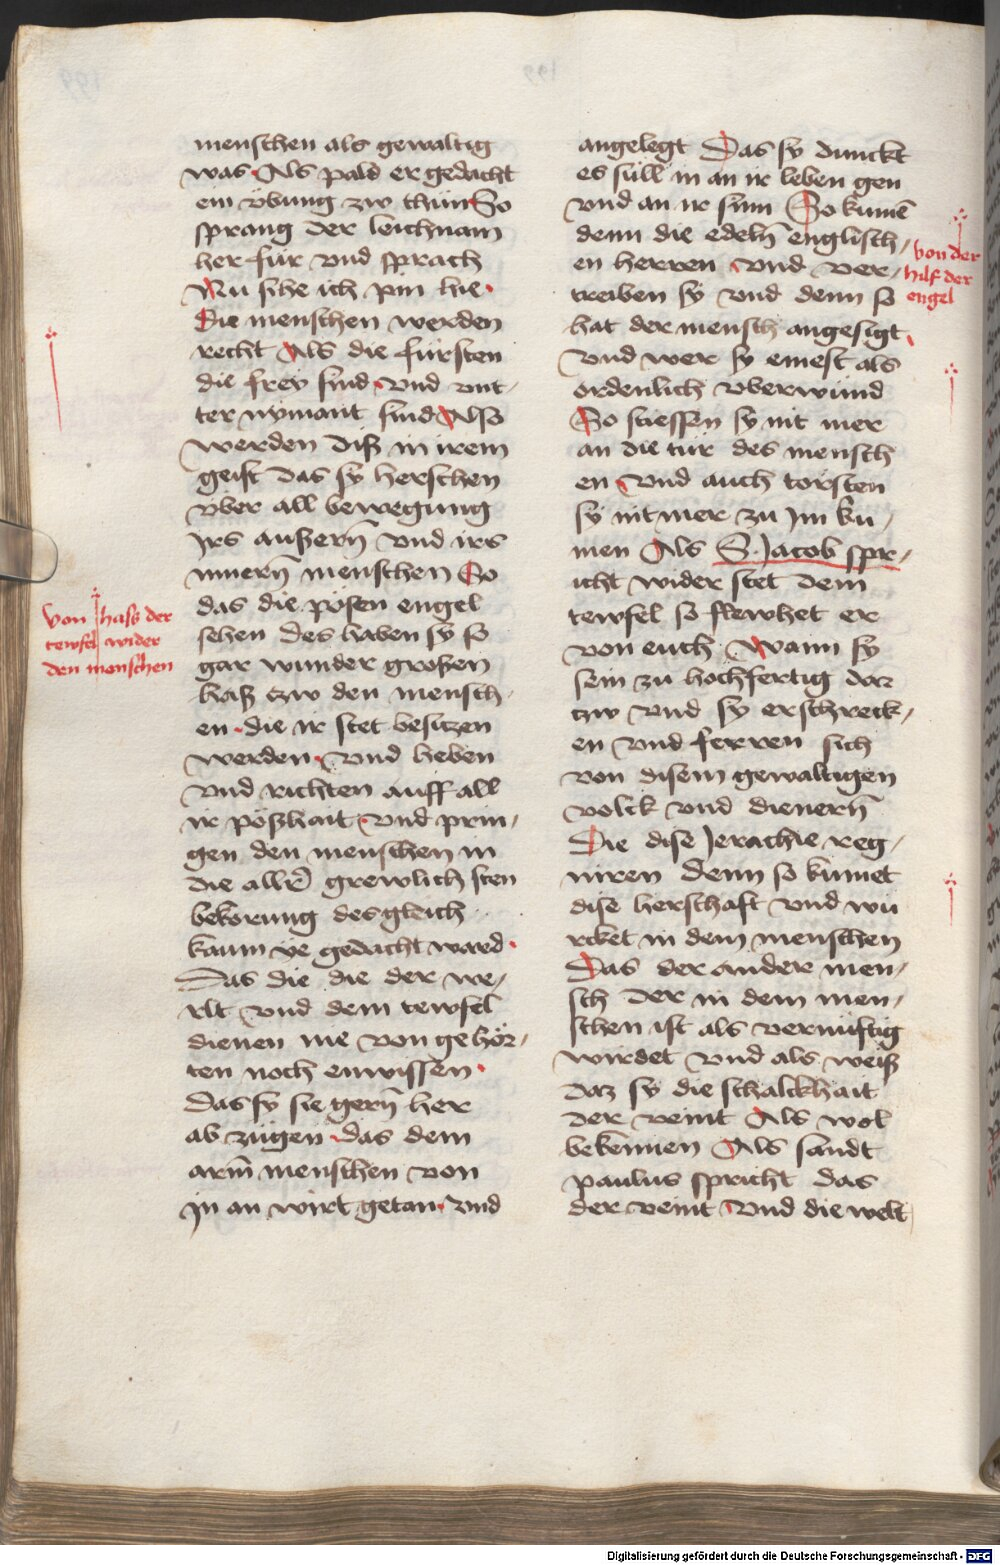 menschen als gewaltig
was Als pald er gedacht
ein vbung zw thun So
sprang der leichnam
her für vnd sprach
Nu sihe ich pin hie
Die menschen werden
recht Als die fursten
die frey sind vnd vnt-
ter nymant sind Also
werden diß in irem
geist das sy herschen
vber all bewegung
Irs außern̄ vnd irs
innern̄ menschen So
das die pösen engel
sehen des haben sy so
gar wunder großen
haß tzw den mensch-
en die ir stet besitzen
werden vnd heben
vnd richten auff all
ir pößhait vnd prin-
gen den menschen in
die allr̄ grewlichsten
bekorung desgleich
kaum ye gedacht ward
Das die die der we-
rlt vnd dem tewfel
dienen nie von gehör-
ten noch enwissen
das sy sie gern̄ her
ab zügen das dem
arm̄ menschen von
in an wirt getan vnd
von hass der
tewfel wider
den menschen
angelegt Das sy dunckt
es süll in an ir leben gen
vnd an ir sinn So kumē
denn die edeln̄ englisch-
en herren vnd ver-
treiben sy vnd denn so
hat der mensch angesigt
vnd wer sy einest als
ordenlich vberwund
So stiessen sy nit mer
an die tür des mensch
en vnd auch törsten
sy nit mer zu im ku-
men Als S. Jacob spr-
icht wider stet dem
tewfel so flewhet er
von euch wann sy
sein zu hochfertig dar
tzw vnd sy erschreck-
en vnd ferren sich
von disem gewaltigen
volck vnd dienern̄
Die dise Jerachie reg-
niren denn so kumet
dise herschaft vnd wu
rcket in dem menschen
Das der ander men-
sch der in dem men-
schen ist als vernuftig
wirdet vnd als weiß
daz sy die schalckhait
der veint Als wol
bekennen Als sandt
paulus spricht das
der veint vnd die welt
von der
hilf der
engel
Digitalisierung gefördert durch die Deutsche Forschungsgemeinschaft - DFG